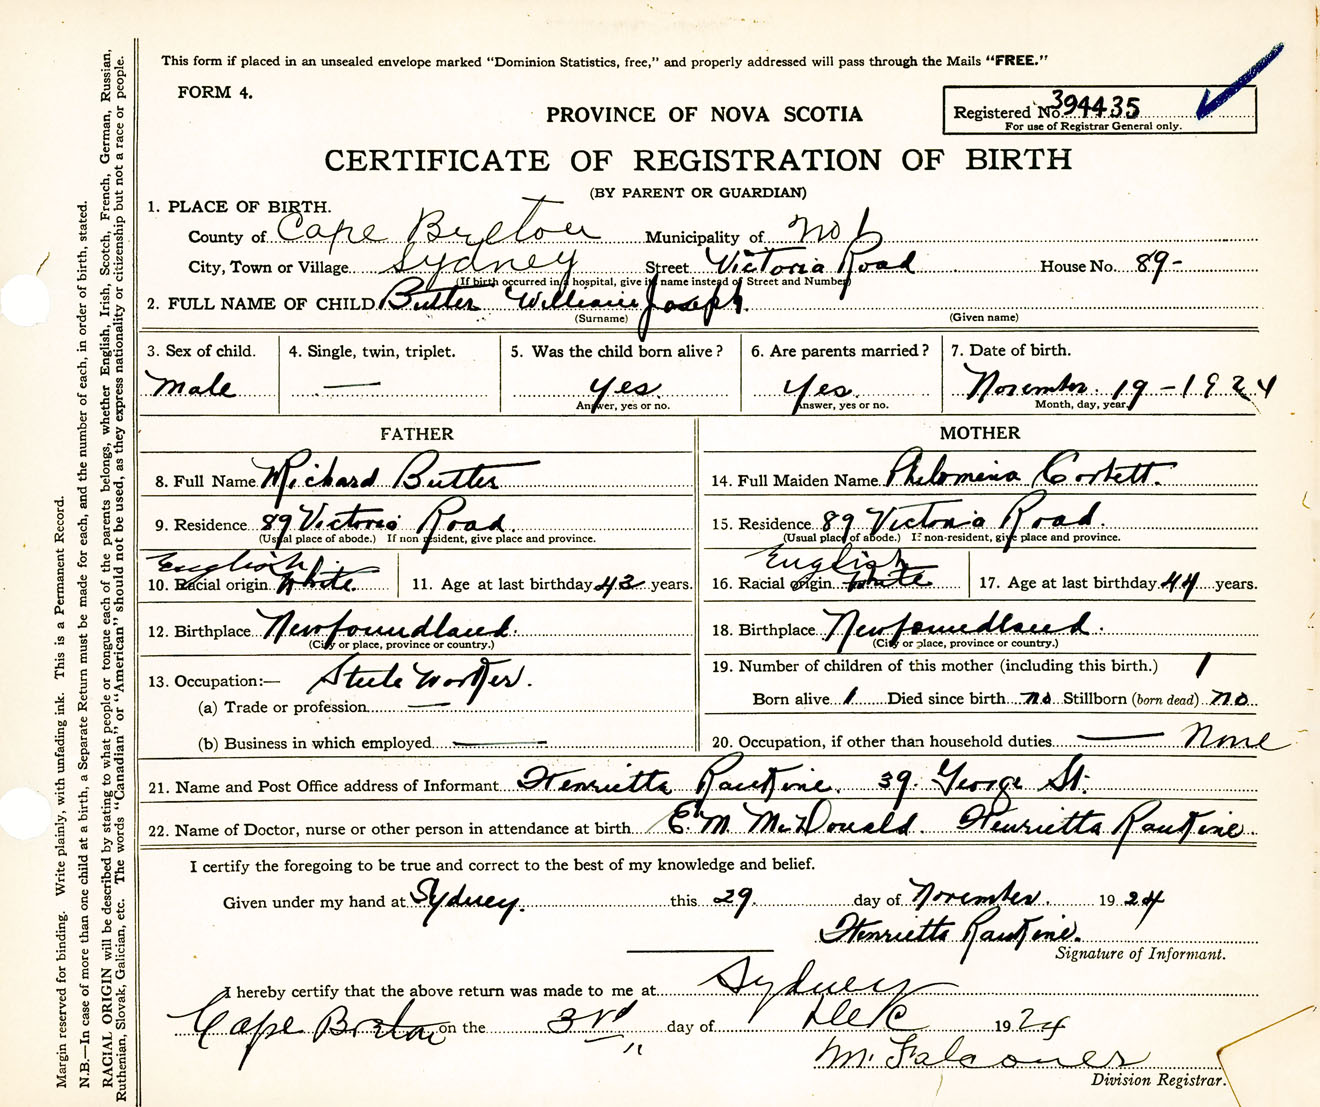 This form if placed in an unsealed envelope marked "Dominion Statistics, free," and properly addressed will pass through the Mails "FREE."
FORM 4.
Registered No. 394435
For use of Registrar General only.
PROVINCE OF NOVA SCOTIA
CERTIFICATE OF REGISTRATION OF BIRTH
(BY PARENT OR GUARDIAN)
1. PLACE OF BIRTH.
County of Cape Breton Municipality of No 1
City, Town or Village Sydney Street Victoria Road House No. 89-
(If birth occurred in a hospital, give its name instead of Street and Number)
2. FULL NAME OF CHILD Butler William Joseph.
(Surname) (Given name)
3. Sex of child. 4. Single, twin, triplet. 5. Was the child born alive? 6. Are parents married? 7. Date of birth.
Male — Yes. Yes. November. 19-1924
Answer, yes or no. Answer, yes or no. Month, day, year.
FATHER MOTHER
8. Full Name Richard Butler 14. Full Maiden Name Philomina Corbett.
9. Residence 89 Victoria Road. 15. Residence 89 Victoria Road.
(Usual place of abode.) If non resident, give place and province. (Usual place of abode.) If non-resident, give place and province.
English English
10. Racial origin White. 11. Age at last birthday 43 years. 16. Racial origin White 17. Age at last birthday 44 years.
12. Birthplace Newfoundland. 18. Birthplace Newfoundland.
(City or place, province or country.) (City or place, province or country.)
13. Occupation:— Steele Worker. 19. Number of children of this mother (including this birth.) 1
(a) Trade or profession — Born alive 1 Died since birth no Stillborn (born dead) no.
(b) Business in which employed — 20. Occupation, if other than household duties — None
21. Name and Post Office address of Informant Henrietta Rankine. 39. George St.
22. Name of Doctor, nurse or other person in attendance at birth E. M. McDonald. Henrietta Rankine.
I certify the foregoing to be true and correct to the best of my knowledge and belief.
Given under my hand at Sydney. this 29 day of November. 1924
Henrietta Rankine.
Signature of Informant.
I hereby certify that the above return was made to me at Sydney
Cape Breton on the 3rd day of Dec 1924
M. Falconer
Division Registrar.
Margin reserved for binding. Write plainly, with unfading ink. This is a Permanent Record.
N.B.—In case of more than one child at a birth, a Separate Return must be made for each, and the number of each, in order of birth, stated.
RACIAL ORIGIN will be described by stating to what people or tongue each of the parents belongs, whether English, Irish, Scotch, French, German, Russian,
Ruthenian, Slovak, Galician, etc. The words "Canadian" or "American" should not be used, as they express nationality or citizenship but not a race or people.